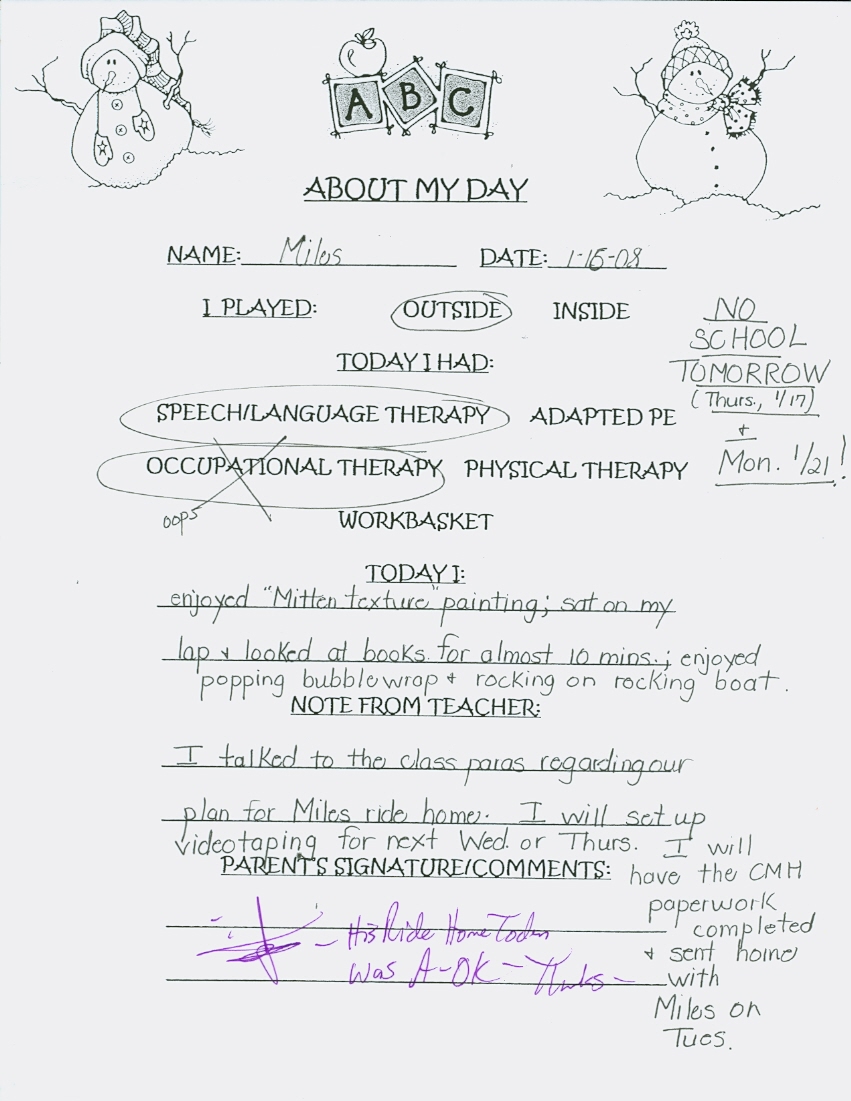 A B C
ABOUT MY DAY
NAME: Miles DATE: 1-16-08
I PLAYED: OUTSIDE INSIDE
NO
SCHOOL
TOMORROW
(Thurs., 1/17)
+
Mon. 1/21!
TODAY I HAD:
SPEECH/LANGUAGE THERAPY ADAPTED PE
OCCUPATIONAL THERAPY PHYSICAL THERAPY
oops
WORKBASKET
TODAY I:
enjoyed "Mitten texture" painting; sat on my
lap + looked at books for almost 10 mins.; enjoyed
popping bubblewrap + rocking on rocking boat.
NOTE FROM TEACHER:
I talked to the class paras regarding our
plan for Miles ride home. I will set up
videotaping for next Wed. or Thurs. I will
have the CMH
paperwork
completed
+ sent home
with
Miles on
Tues.
PARENT'S SIGNATURE/COMMENTS:
- His Ride Home Today
was A-OK - Thanks -